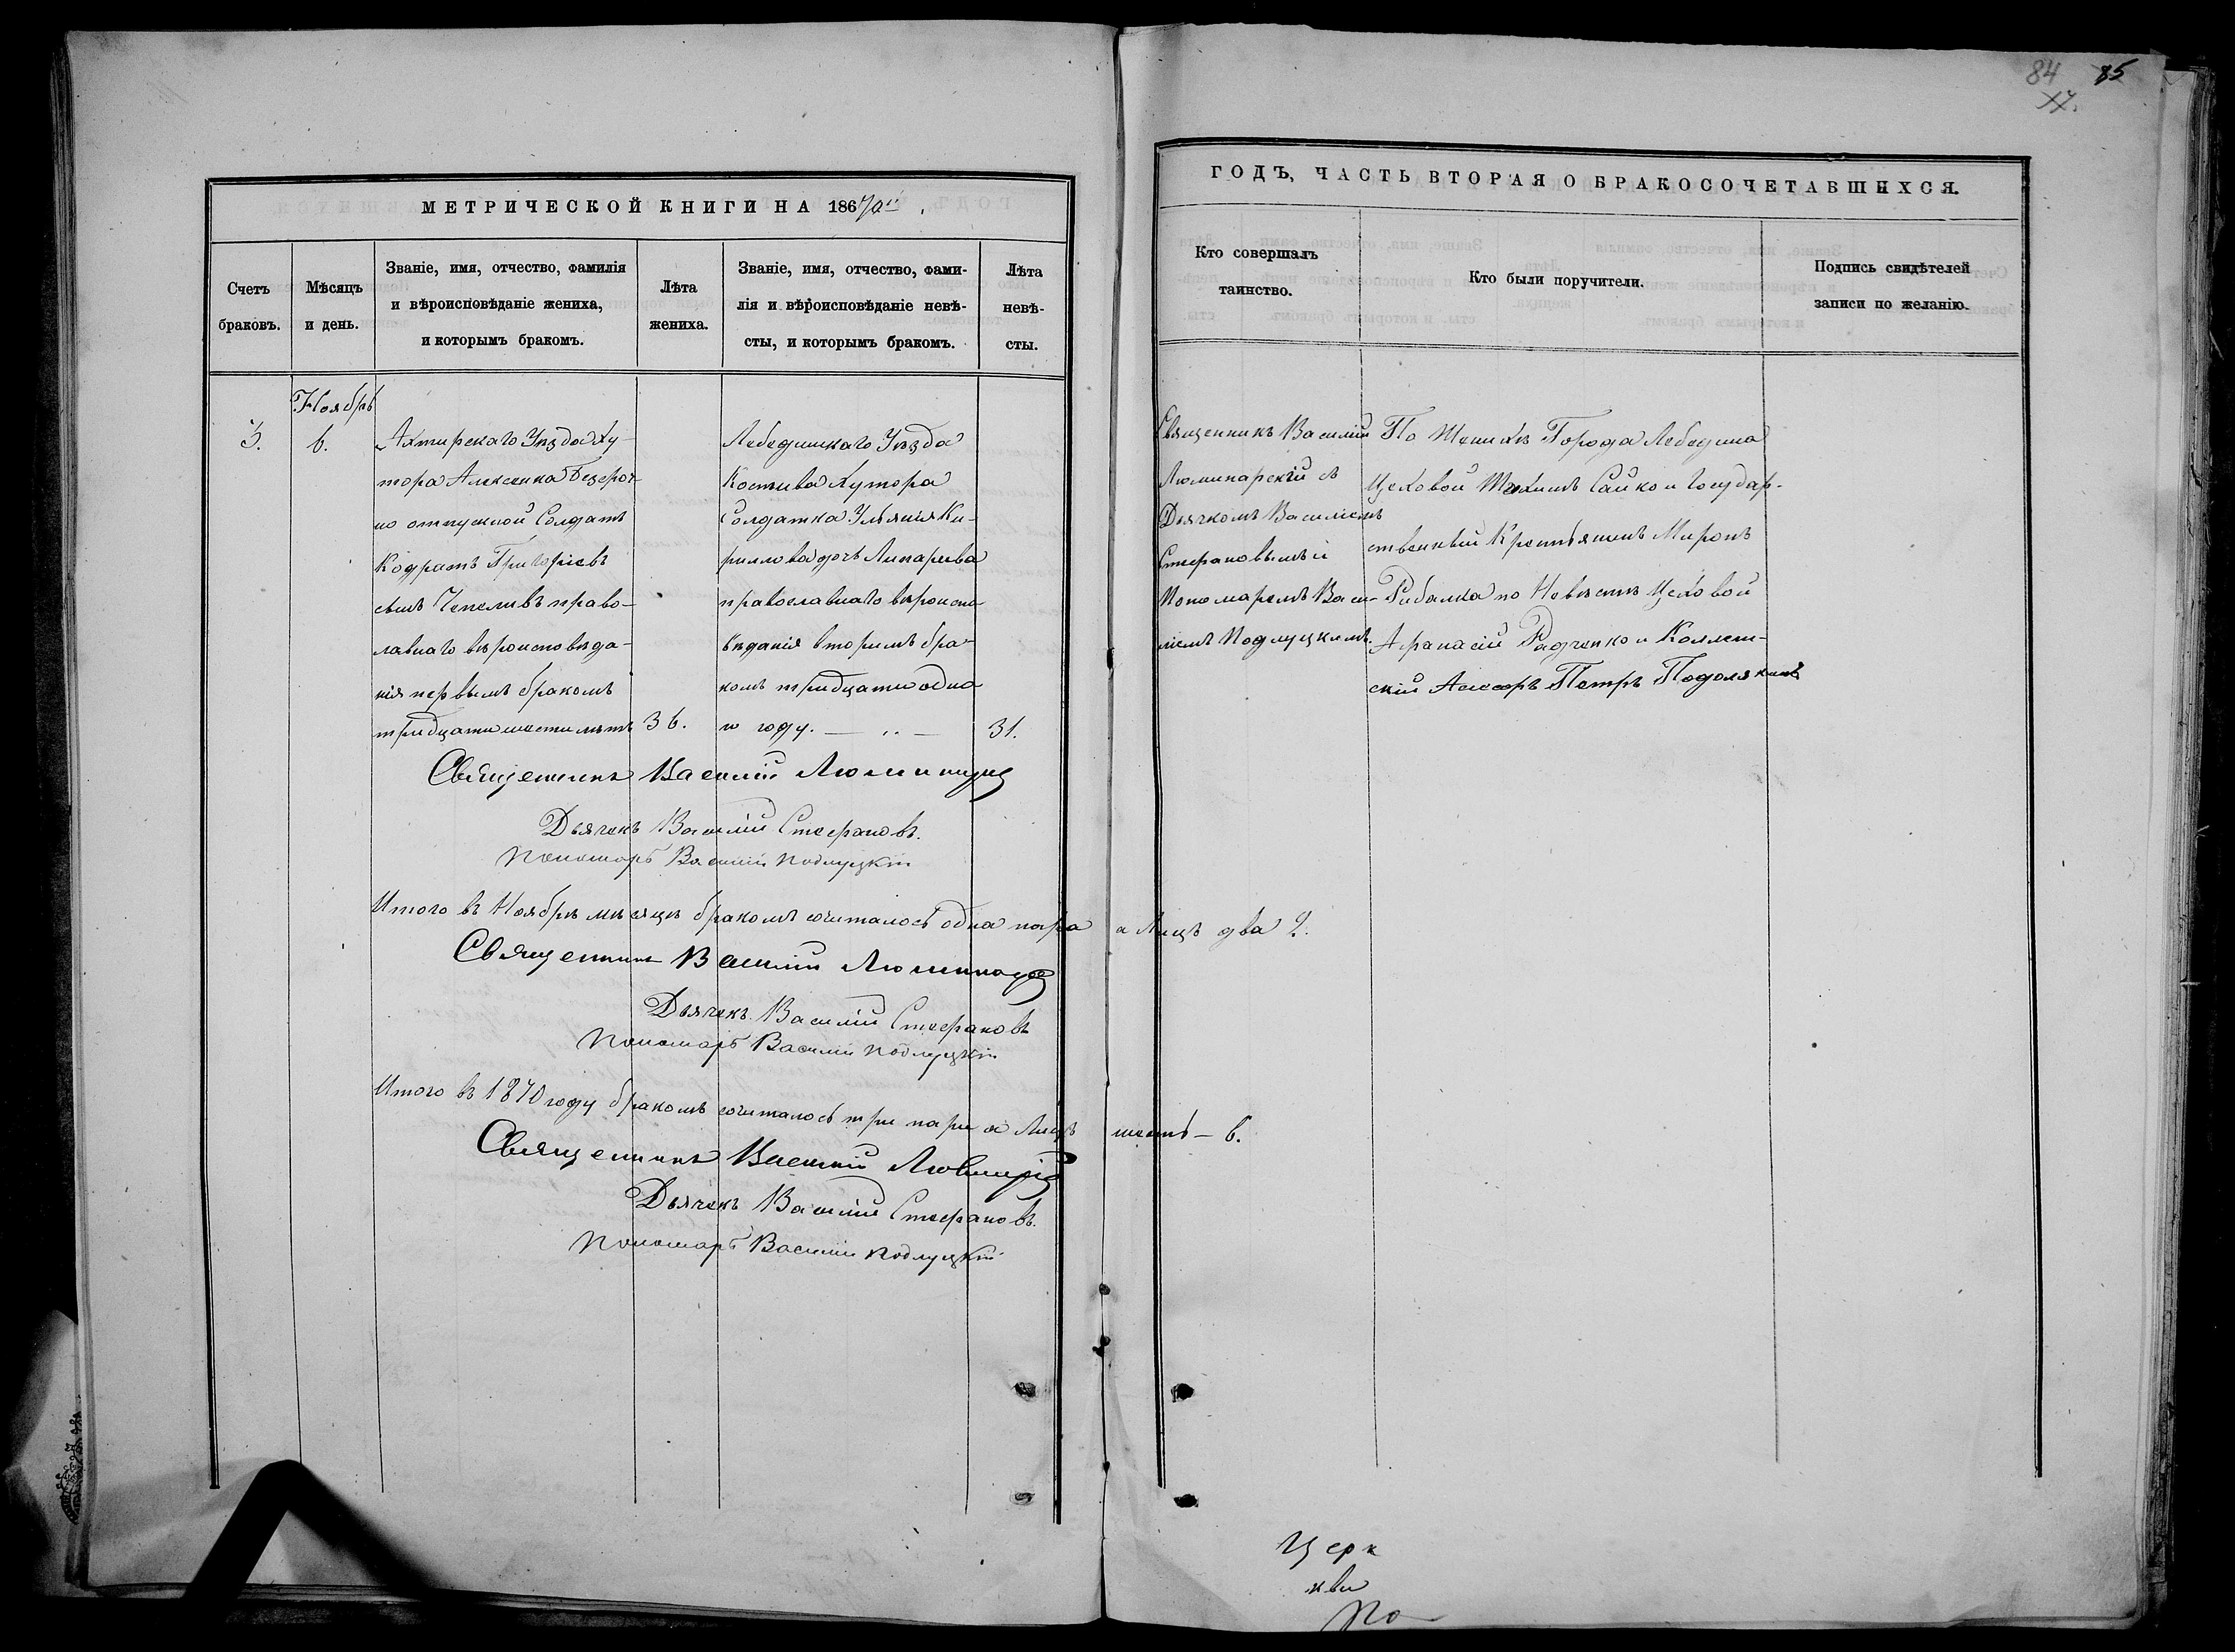 84 85
МЕТРИЧЕСКОЙ КНИГИ НА 18670й
ГОДЪ, ЧАСТЬ ВТОРАЯ О БРАКОСОЧЕТАВШИХСЯ.
Счетъ
браковъ.
Мѣсяцъ
и день.
Званіе, имя, отчество, фамилія
и вѣроисповѣданіе жениха,
и которымъ бракомъ.
Лѣта
жениха.
Званіе, имя, отчество, фами-
лія и вѣроисповѣданіе невѣ-
сты, и которымъ бракомъ.
Лѣта
невѣ-
сты.
Кто совершалъ
таинство.
Кто были поручители.
Подпись свидѣтелей
записи по желанію.
3.
Ноябрь
6.
Ахтирскаго Уѣзда Ху-
тора Алексенка безсроч-
но отпускной Солдатъ
Кодратъ Григоріевъ
сынъ Чепеливъ право-
лавнаго вѣроисповѣда-
нія первымъ бракомъ
тридцати шести лѣтъ
36.
Лебединскаго Уѣзда
Костива Хутора
Солдатка Ульянія Ки-
рилловадочь Липарева
православнаго вѣроиспо-
вѣданія вторимъ бра-
комъ тридцати одно
го году.
31.
Священникъ Василій
Люминарскій съ
Дьячкомъ Василіемъ
Стефановымъ и
Пономаремъ Васи-
ліемъ Подлуцкимъ.
По Женихѣ Города Лебедина
Цеховой Сайко и Государ-
ственный Крестьянинъ Миронъ
Рибалка по Невѣстѣ Цеховой
Афанасій Радченко и Коллеж-
скій Асесоръ Петръ Подолякинъ
Священникъ Василій Люминарск
Дьячекъ Василій Стефановъ.
Пономарь Василій Подлуцкій
Итого въ Ноябрѣ мѣсяцѣ бракомъ сочиталось одна пара а Лицъ два 2.
Священникъ Василій Люминарск
Дьячекъ Василій Стефановъ
Пономарь Василій Подлуцкій
Итого въ 1870 году бракомъ сочиталось три пари а Лицъ шесть – 6.
Священникъ Василій Люминарск
Дьячекъ Василій Стефановъ.
Пономарь Василій Подлуцкій
Церк
кви
По